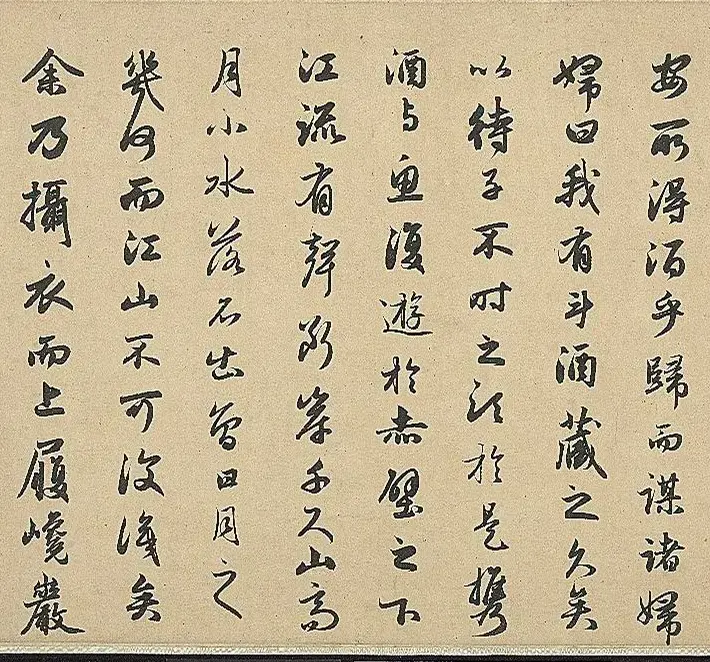 安所得酒乎歸而謀諸婦
婦曰我有斗酒藏之久矣
以待子不時之須於是攜
酒与魚復遊於赤壁之下
江流有聲斷岸千尺山高
月小水落石出曾日月之
幾何而江山不可復識矣
余乃攝衣而上履巉巖